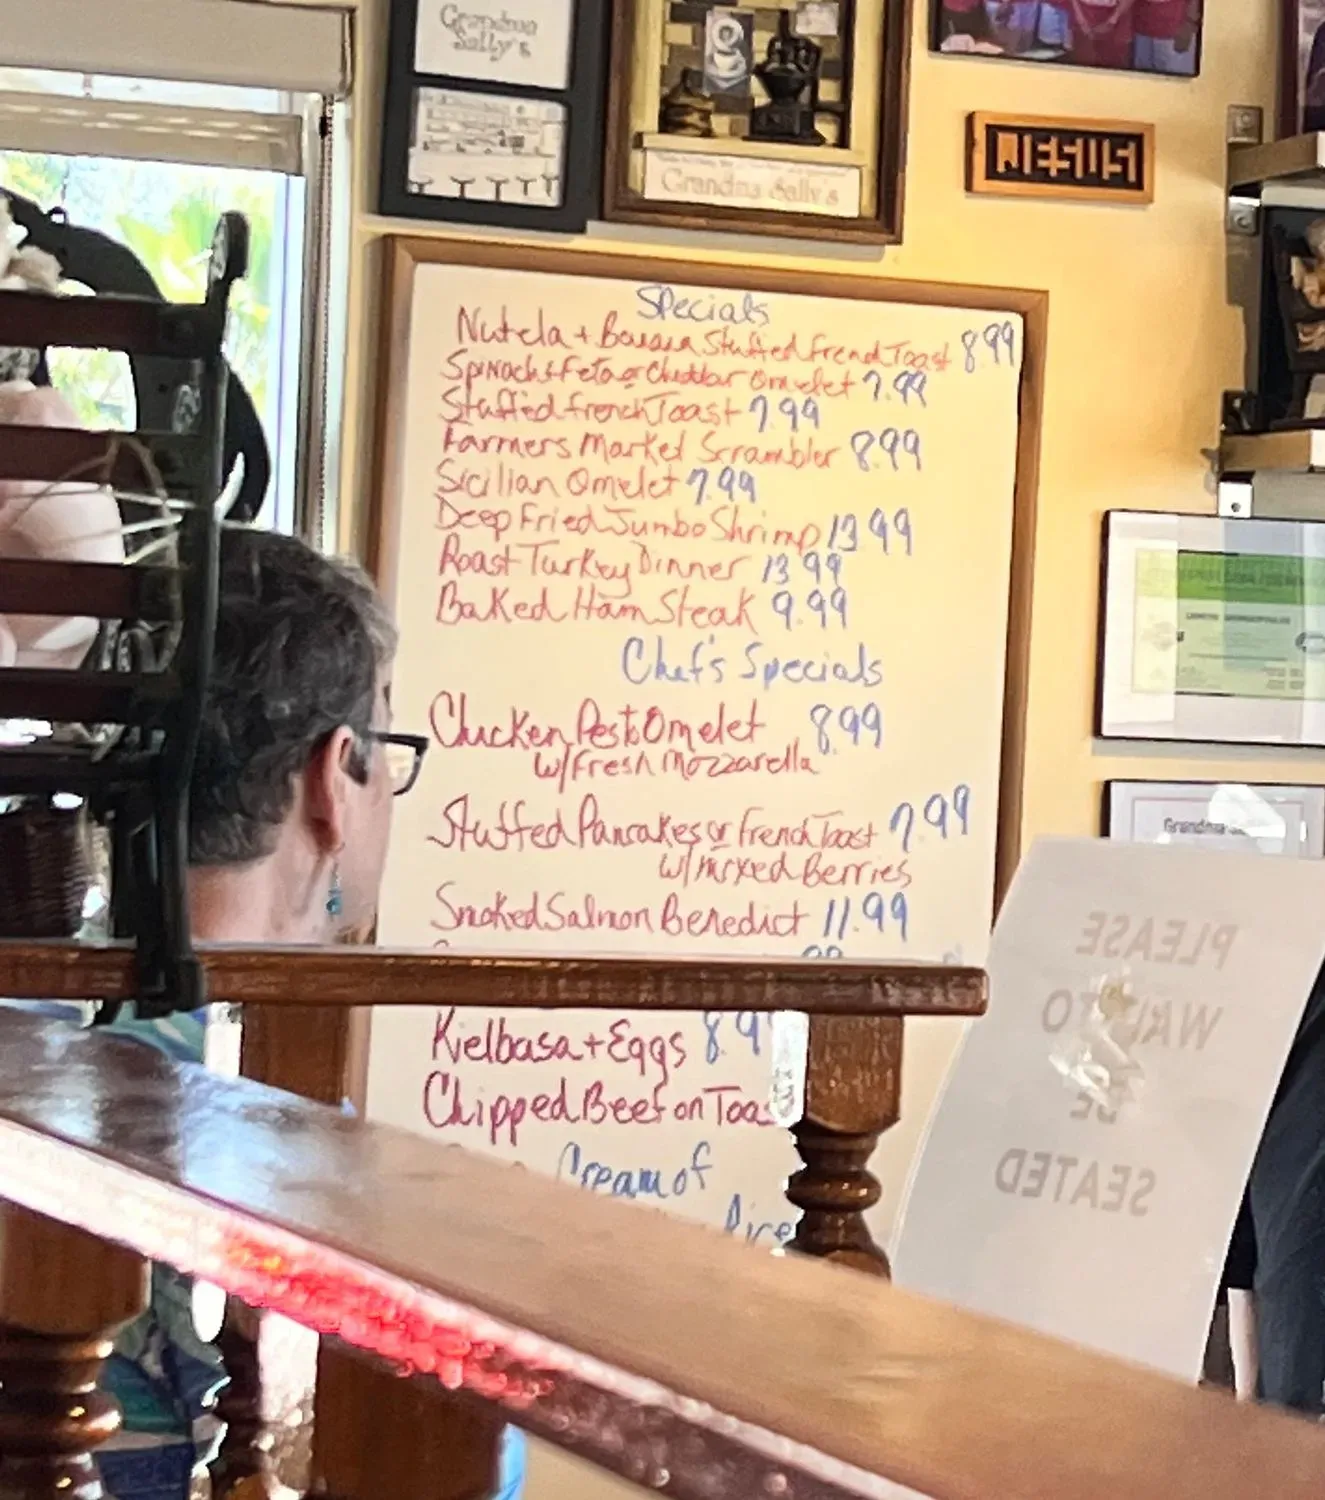 Grandma
Sally's
Grandma Sally's
JESUS
Specials
Nutela + Banana Stuffed French Toast 8.99
Spinach & Feta or Cheddar Omelet 7.99
Stuffed French Toast 7.99
Farmers Market Scrambler 8.99
Sicilian Omelet 7.99
Deep Fried Jumbo Shrimp 13.99
Roast Turkey Dinner 13.99
Baked Ham Steak 9.99
Chef's Specials
Chicken Pesto Omelet 8.99
w/ Fresh Mozzarella
Stuffed Pancakes or French Toast 7.99
w/ mixed Berries
Smoked Salmon Benedict 11.99
Kielbasa + Eggs 8.9
Chipped Beef on Toas
Cream of
Rice
Grandma
PLEASE
WAIT TO
BE
SEATED